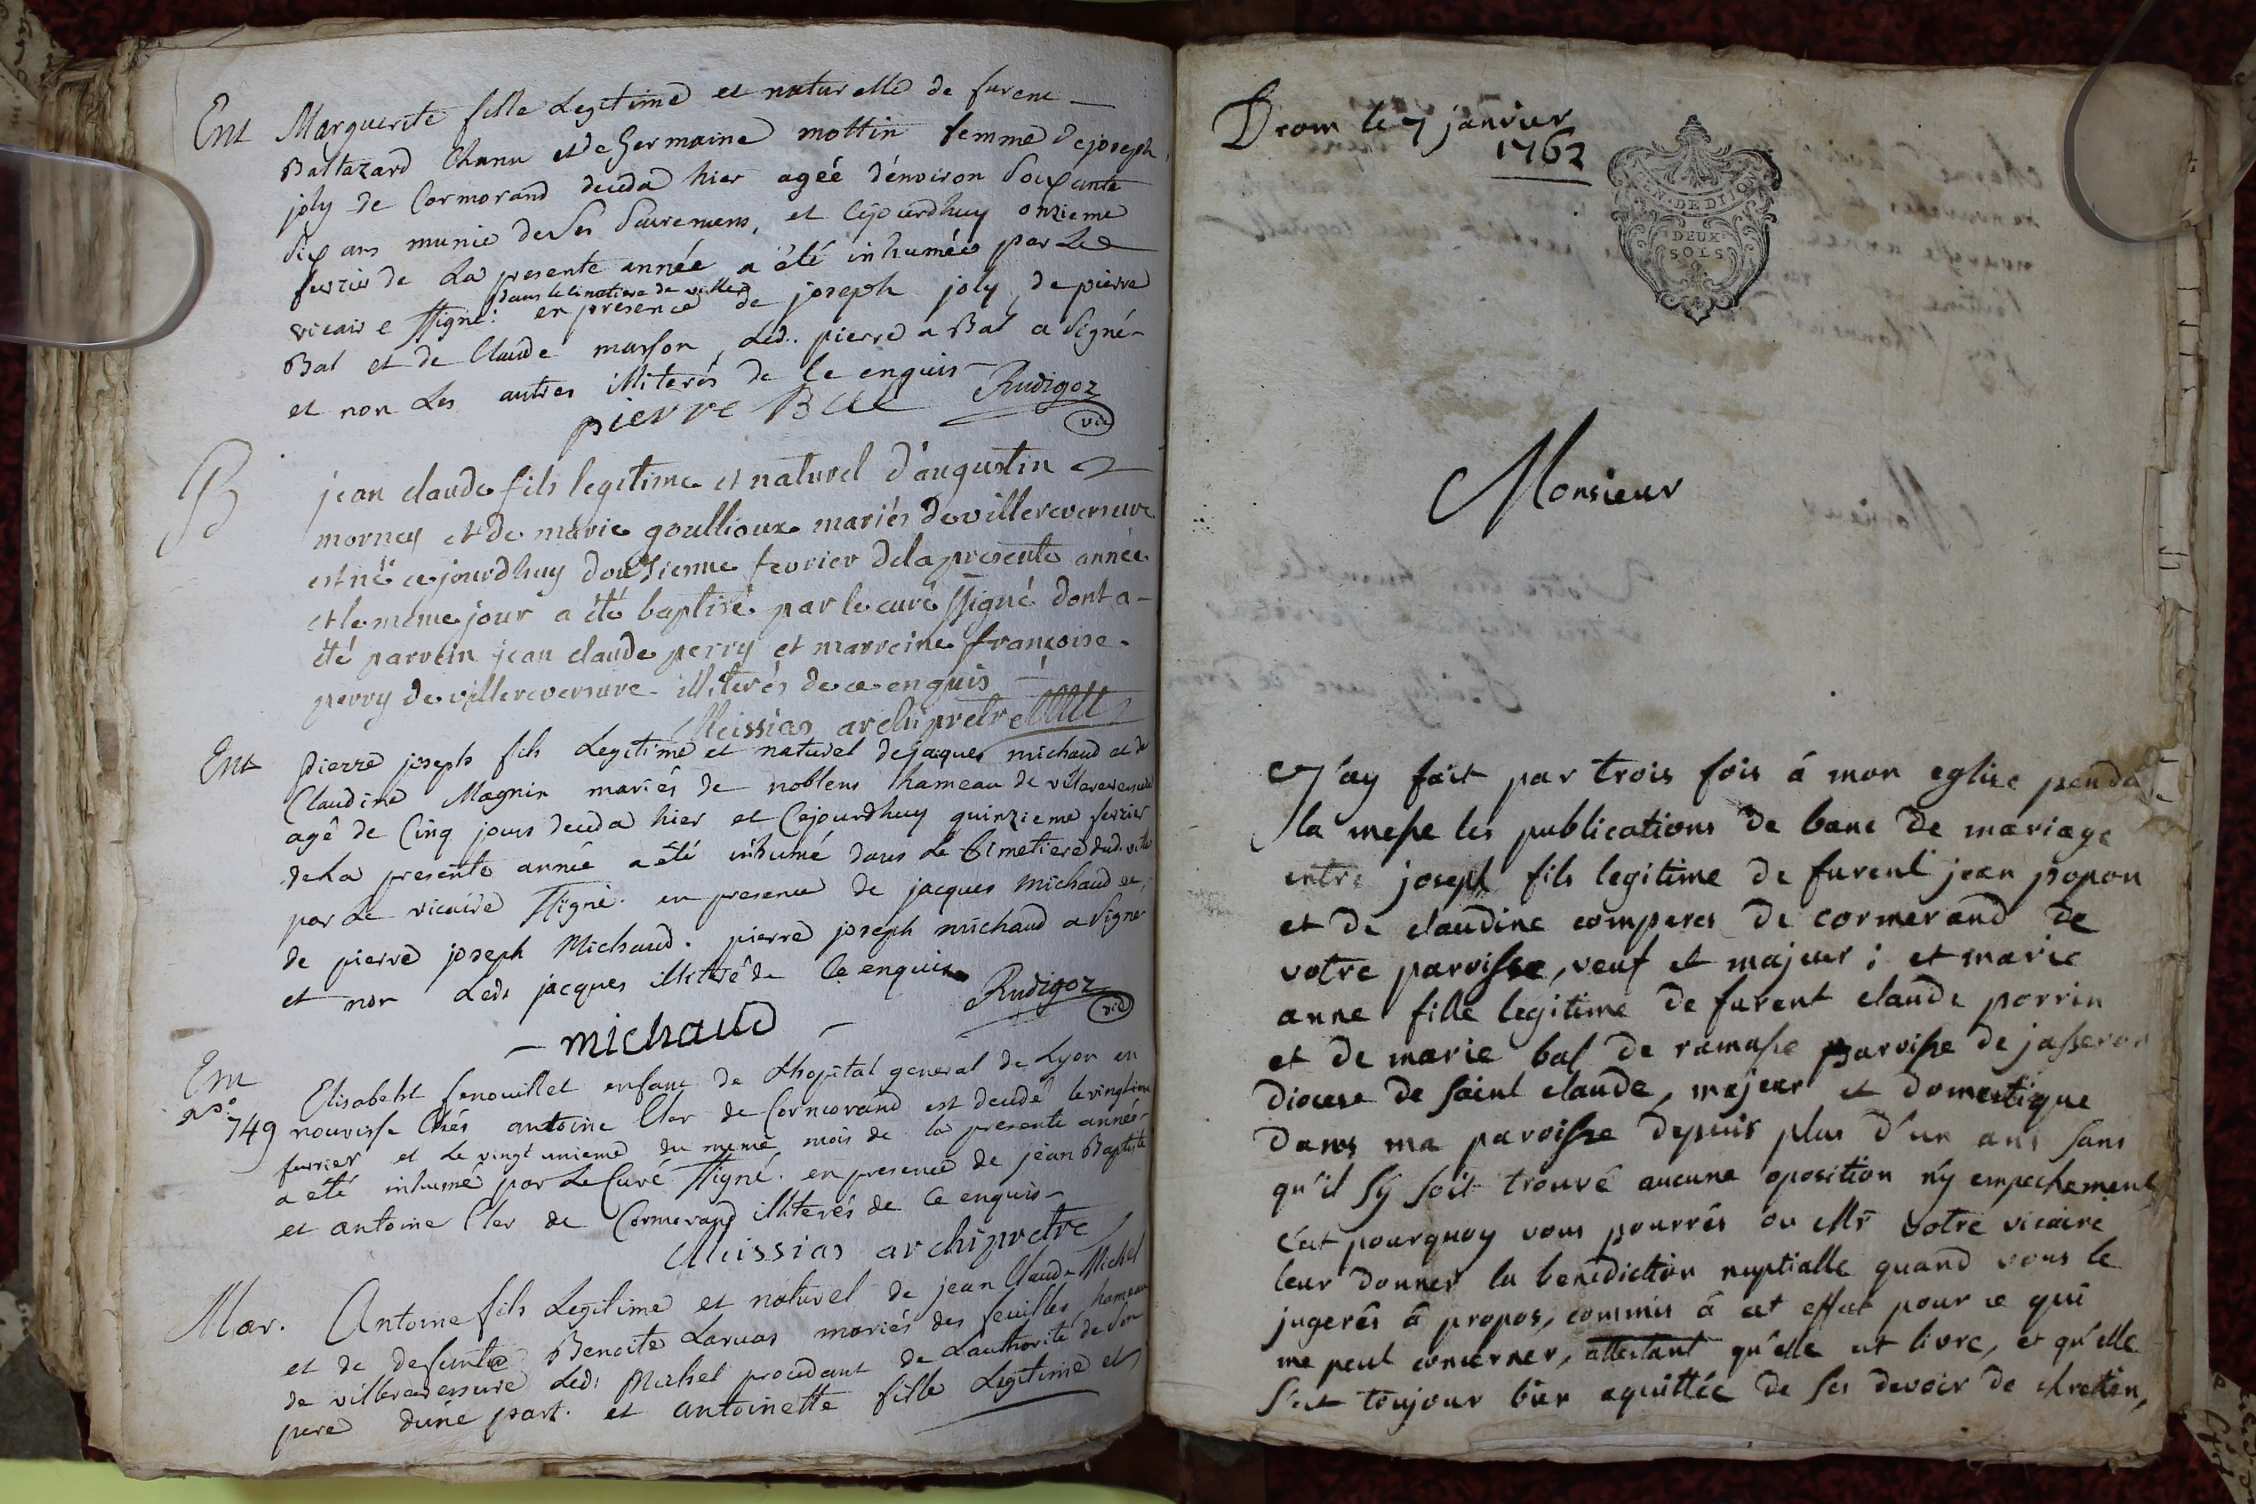 Ent Marguerite fille Legitime et naturelle de furent
Baltazard Chanu et de Germaine mottin femme de joseph
joly de Cormorand deceda hier agéé d'environ Soixante
Six ans munie de Ses Sacremens, et Cejourdhuy onzieme
fevrier de La presente année a été inhumée par Le
dans le cimetiere de ville
vicaire ssigné: en presence de joseph joly, de pierre
Bal et de Claude marson, Led. pierre a Bal a Signé
et non Les autres illiterés de Ce enquis
pierre Bal Rudigoz
vic
B jean claude fils legitime et naturel d'augustin
mornay et de marie goullioux mariés de villereversure
est né cejourdhuy douzieme fevrier dela presente année
et le même jour a été baptisé par le curé ssigné dont a
été parrein jean claude perry et marreine françoise
perry de villereversure illiterés de ce enquis
Meissias archipretre
Ent pierre joseph fils Legitime et naturel de jaques michaud et de
Claudine Magnin mariés de noblens hameau de villereversure
agé de Cinq jours deceda hier et Cejourdhuy quinzieme fevrier
de La presente année a été inhumé dans Le Cimetiere dud. ville
par Le vicaire ssigné. en presence de jacques michaud et
de pierre joseph Michaud. pierre joseph michaud a Signé
et non Led. jacques illitéré de Ce enquis
michaud Rudigoz
vic
Ent Elisabeht fenouillet enfant de Lhopital general de Lyon en
no. 749 nourisse Chés antoine Cler de Cormorand est decedé le vingtieme
fevrier et Le vingt unieme du meme mois de la presente année
a été inhumé par Le Curé ssigné. en presence de jean Baptiste
et antoine Cler de Cormorand illiterés de Ce enquis
Meissias archipretre
Mar. Antoine fils Legitime et naturel de jean Claude Michel
et de defunte Benoite Laruas mariés des feuilles hameau
de villereversure Led. Michel procedant de L'authorité de Son
pere d'une part. et antoinette fille Legitime et
Drom le 7 janvier
1762
GEN. DE DIJON
DEUX
SOLS
Monsieur
J'ay fait par trois fois á mon eglise penda
la messe les publications de banc de mariage
entre joseph fils legitime de furent jean popon
et de claudine comperes de cormerand de
votre paroisse, veuf et majeur; et marie
anne fille legitime de furent claude perrin
et de marie bal de ramasse paroisse de jasseron
diocese de saint claude, majeur et domestique
dans ma paroisse depuis plus d'un ans sans
qu'il s'y soit trouvé aucune oposition n'y empechement
c'est pourquoy vous pourrés ou Mr votre vicaire
leur donner la benediction nuptialle quand vous le
jugerês â propos, commis â cet effet pour ce qui
me peut concerner, attestant qu'elle est livre, et qu'elle
s'est toujour bien aquittée de ses devoir de chretien,